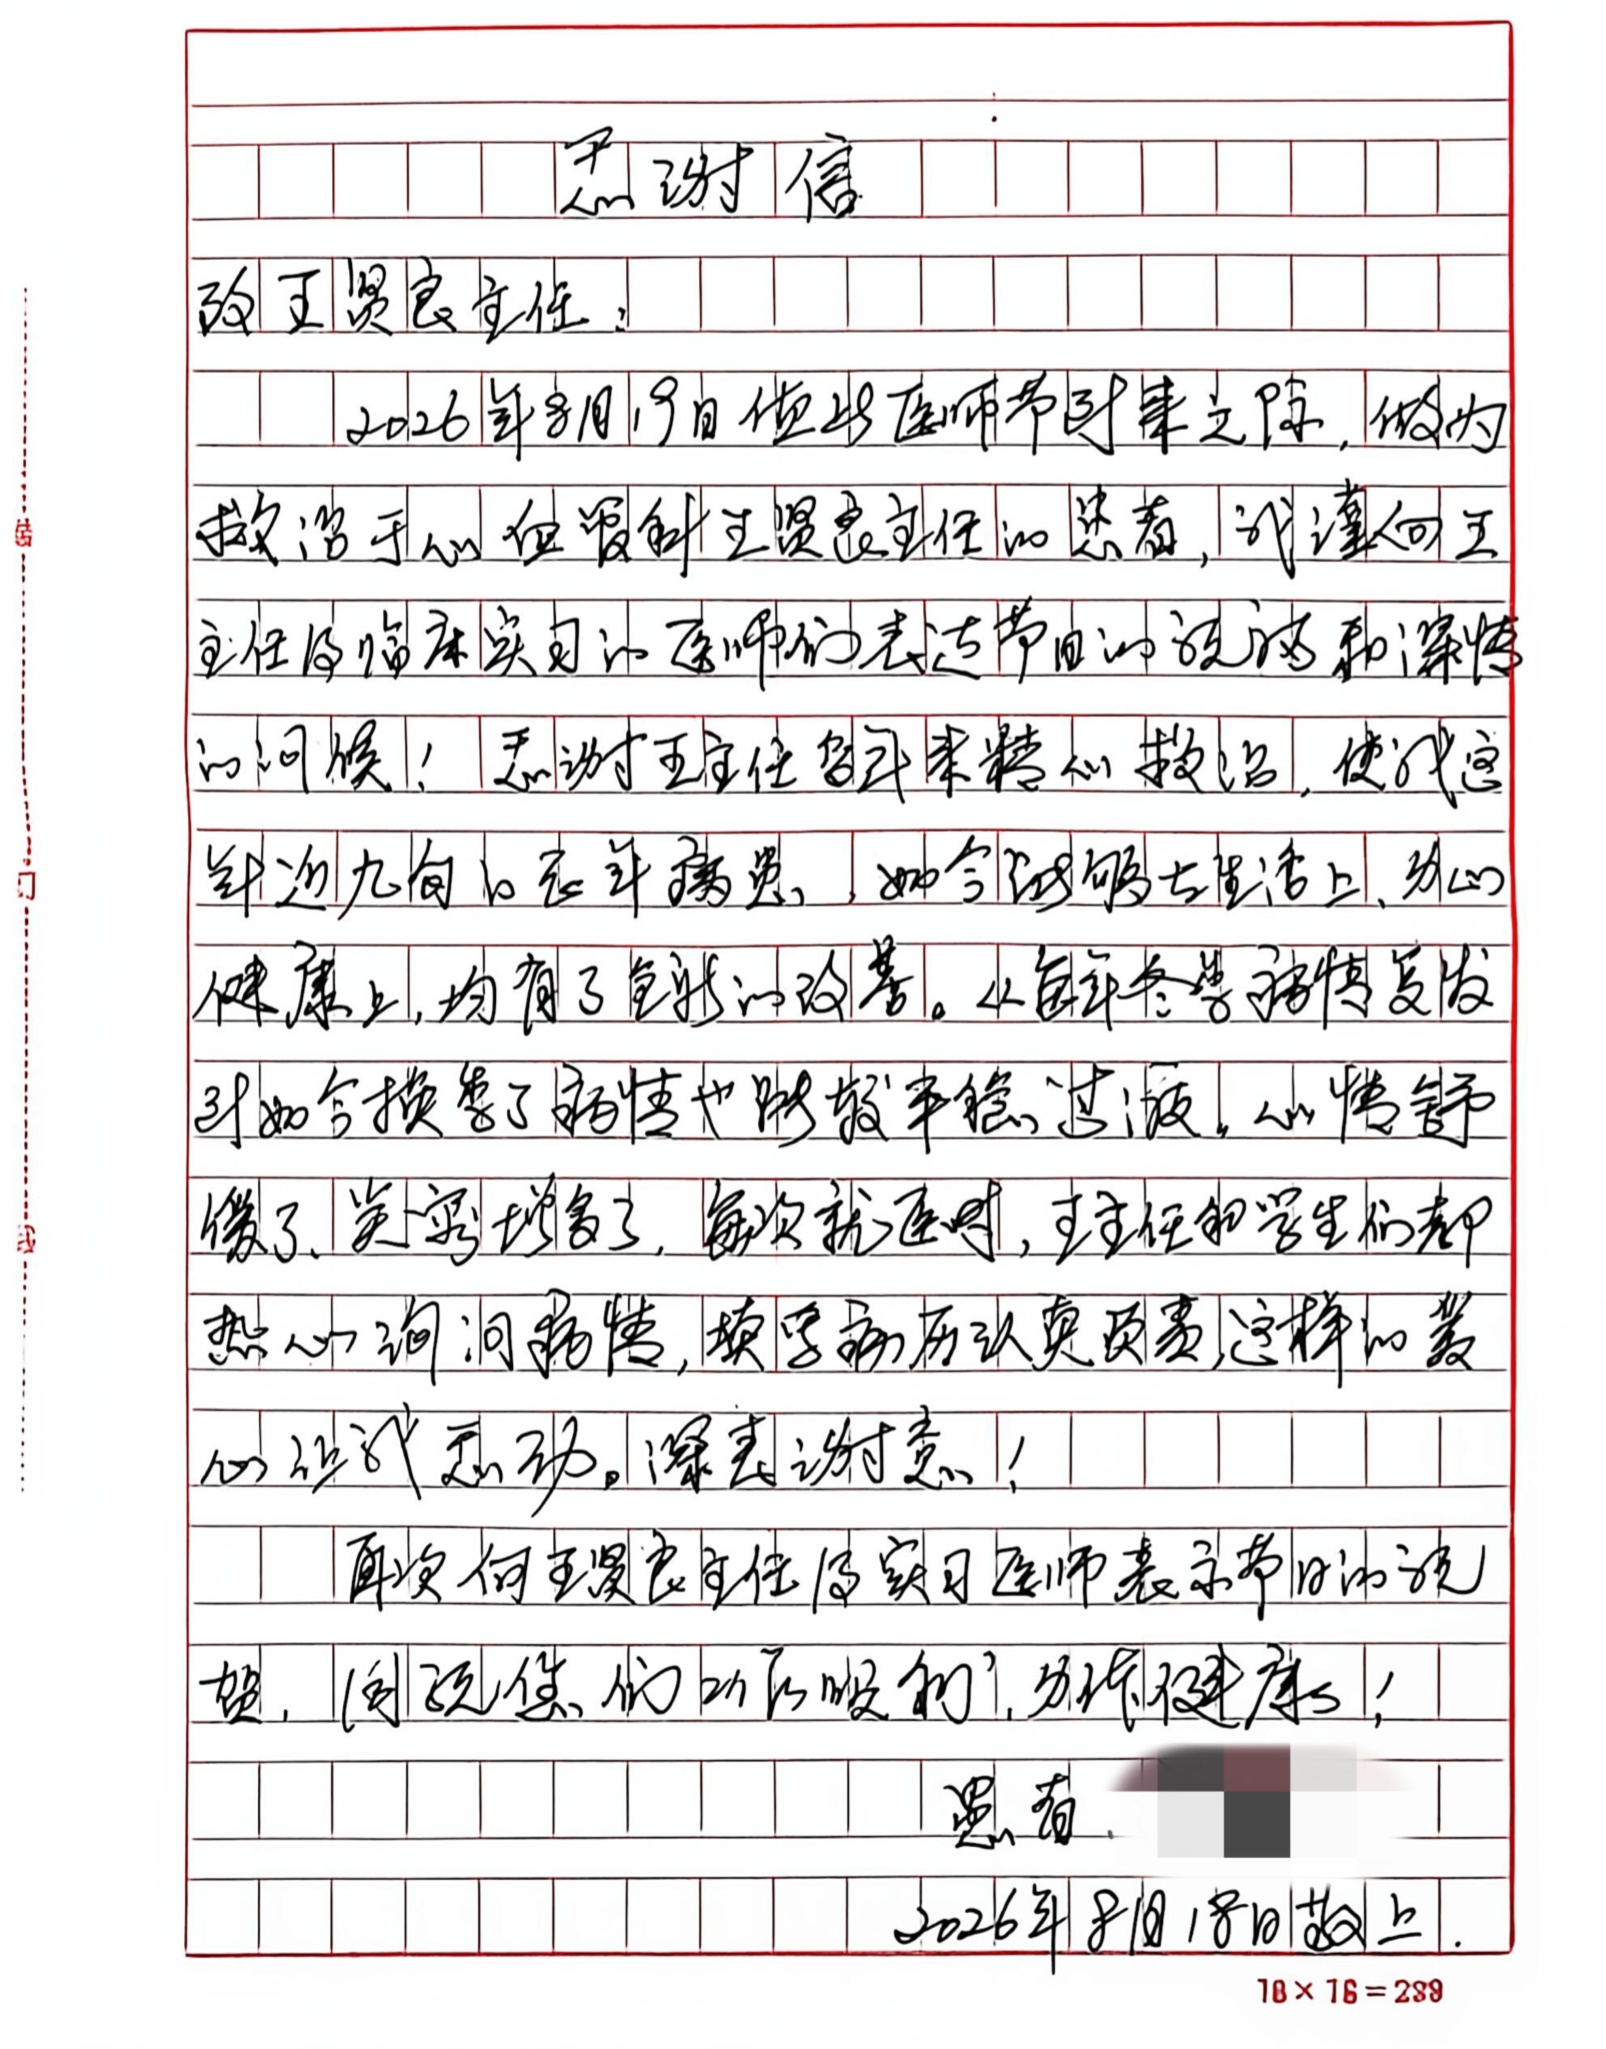 感谢信
致王贤良主任：
2026年8月19日值此医师节到来之际，做为
救治于心血管科王贤良主任的患者，我谨向王
主任及临床实习的医师们表达节日的祝福和深情
的问候！感谢王主任多年来精心救治，使我这
年近九旬的老年病患，如今能够在生活上、身心
健康上，均有了全新的改善。从每年冬季病情复发
到如今换季了病情也能较平稳过渡。心情舒
缓了、笑容增多了，每次就医时，王主任和学生们都
热心询问病情，填写病历认真负责，这样的爱
心让我感动。深表谢意！
再次向王贤良主任及实习医师表示节日的祝
贺，同祝您们工作顺利，身体健康！
患者
2026年8月18日敬上.
18×16=288